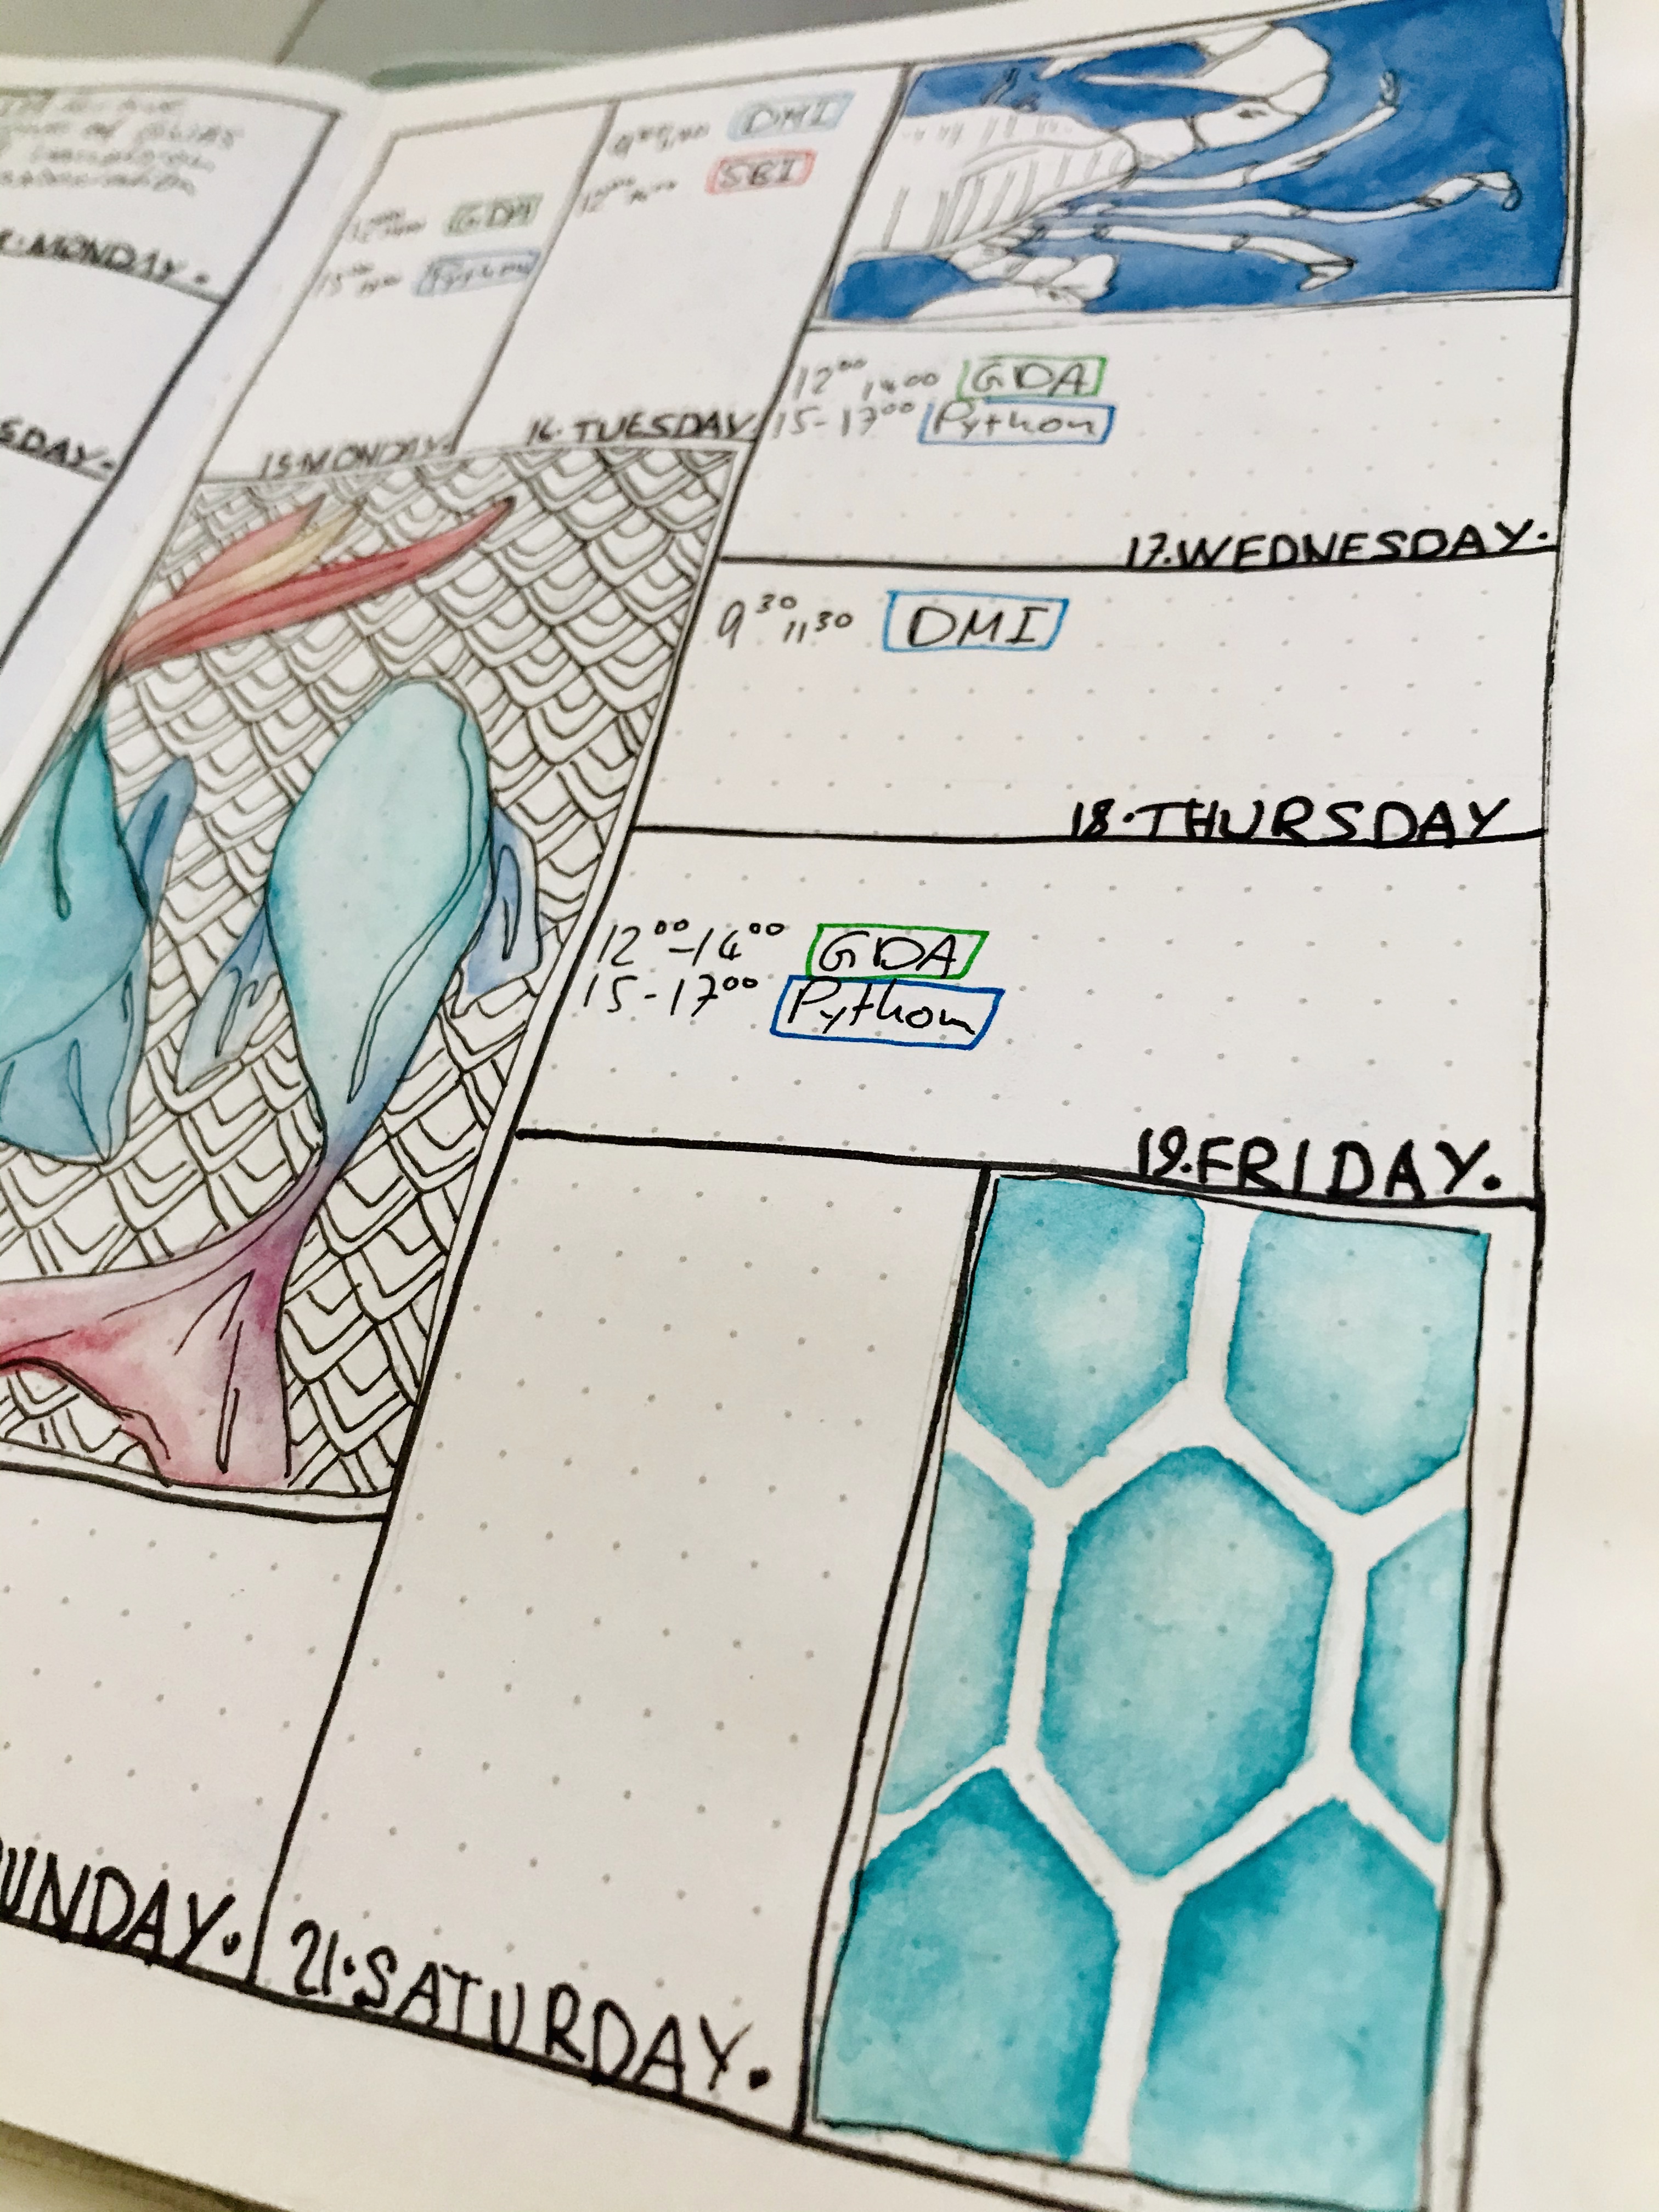 MONDAY.
SDAY.
GDA
Python
15.MONDAY.
DMI
SBI
16.TUESDAY.
12⁰⁰ 14⁰⁰ GDA
15-17⁰⁰ Python
17.WEDNESDAY.
9³⁰ 11³⁰ DMI
18.THURSDAY
12⁰⁰-14⁰⁰ GDA
15-17⁰⁰ Python
19.FRIDAY.
UNDAY.
21.SATURDAY.